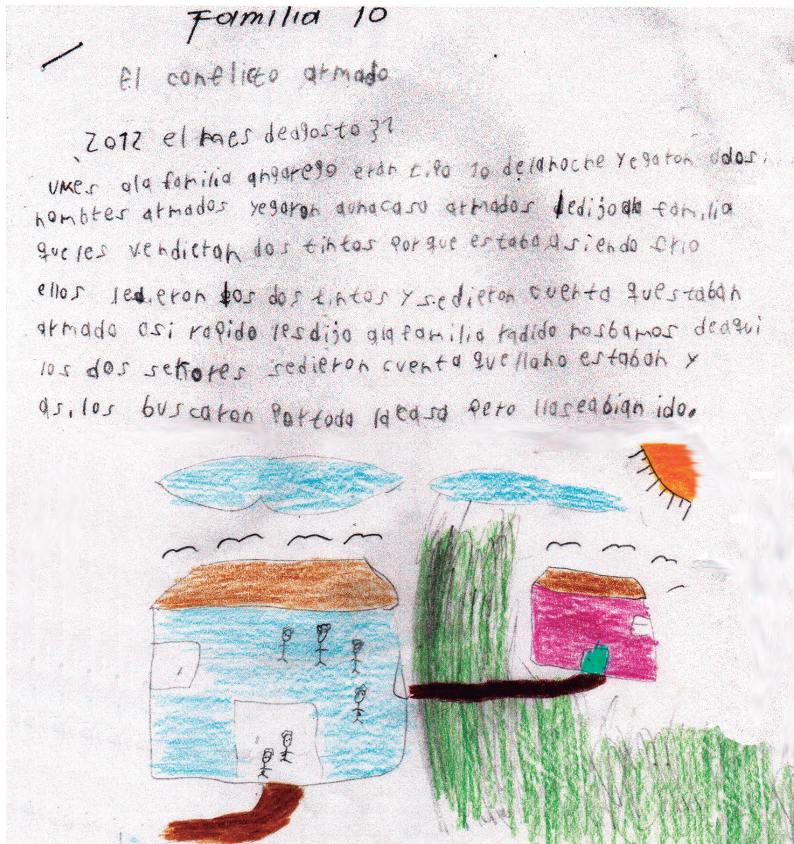 Familia 10
El conflicto armado
2012 el mes deagosto 31
ala familia eran tipo 10 delanoche yegaron
hombres armados yegaron aunacasa armados ledijo familia
queles vendieran dos tintos porque estaba asiendo frio
ellos ledieron los dos tintos y sedieron cuenta questaban
armado asi rapido lesdijo ala familia radido nosbamos deaqui
los dos señores sedieron cuenta quellano estaban y
asi los buscaron portoda lacasa pero llaseabian ido.